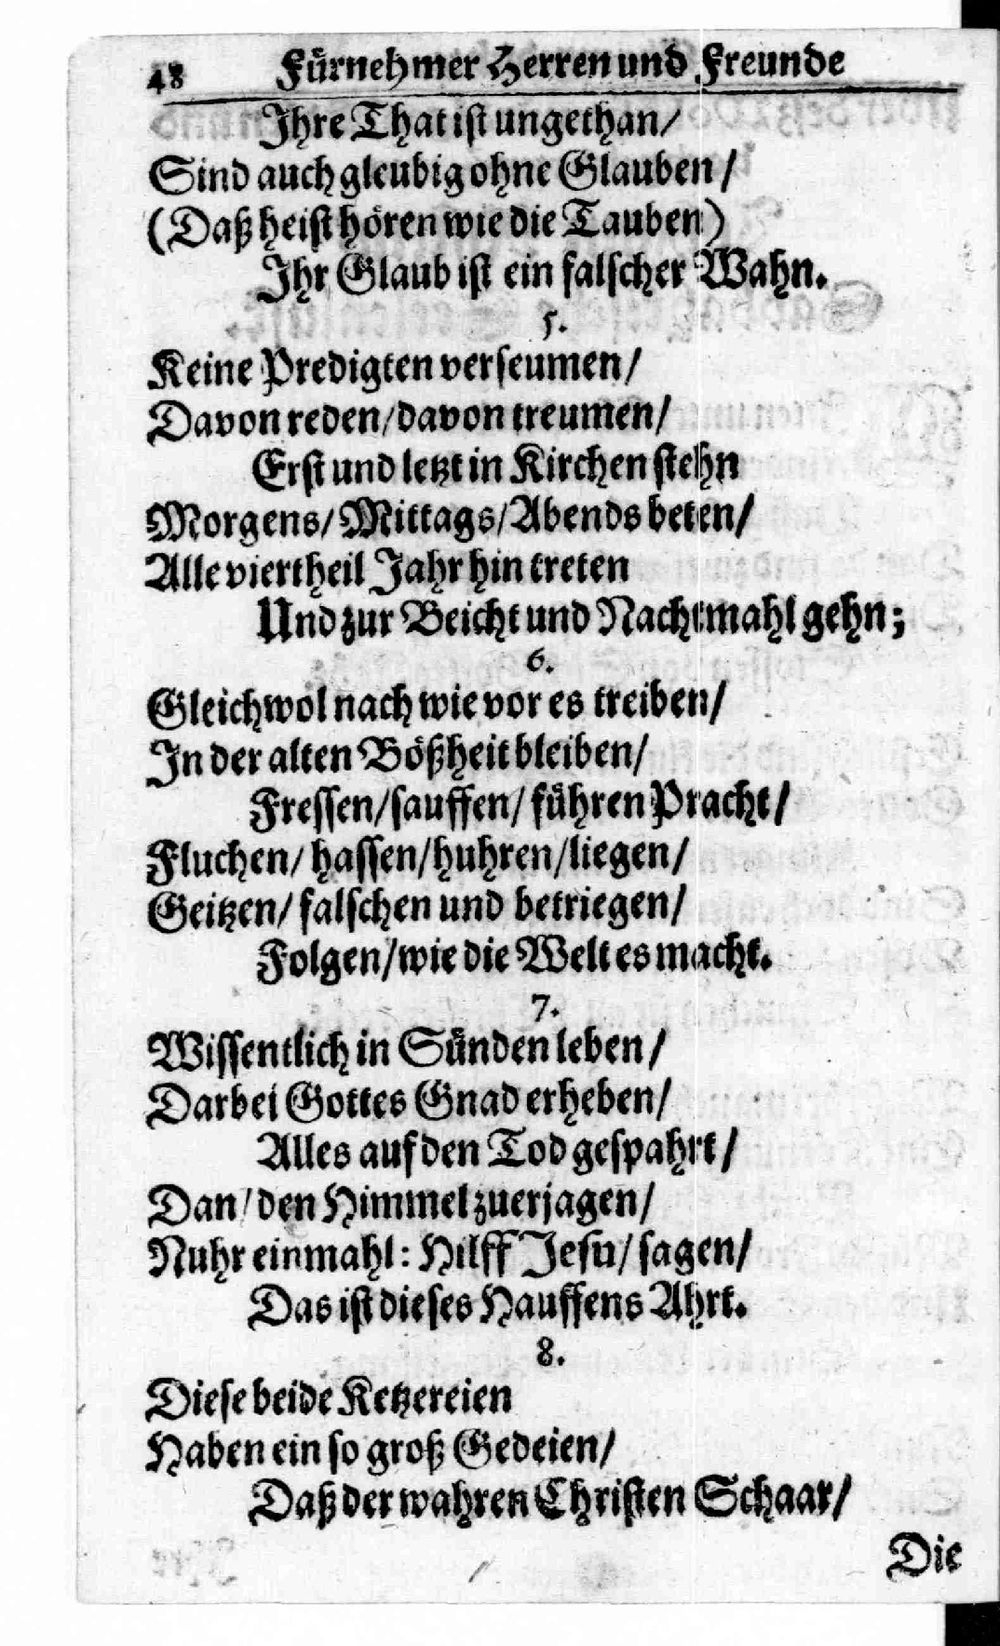 48 Fürnehmer Herren und Freunde
Ihre That ist ungethan/
Sind auch gleubig ohne Glauben/
(Daß heist hören wie die Tauben)
Ihr Glaub ist ein falscher Wahn.
5.
Keine Predigten verseumen/
Davon reden/davon treumen/
Erst und letzt in Kirchen stehn
Morgens/Mittags/Abends beten/
Alle viertheil Jahr hin treten
Und zur Beicht und Nachtmahl gehn;
6.
Gleichwol nach wie vor es treiben/
In der alten Bößheit bleiben/
Fressen/sauffen/führen Pracht/
Fluchen/hassen/huhren/liegen/
Geitzen/falschen und betriegen/
Folgen/wie die Welt es macht.
7.
Wissentlich in Sünden leben/
Darbei Gottes Gnad erheben/
Alles auf den Tod gespahrt/
Dan/den Himmel zuerjagen/
Nuhr einmahl: Hilff Jesu/sagen/
Das ist dieses Hauffens Ahrt.
8.
Diese beide Ketzereien
Haben ein so groß Gedeien/
Daß der wahren Christen Schaar/
Die